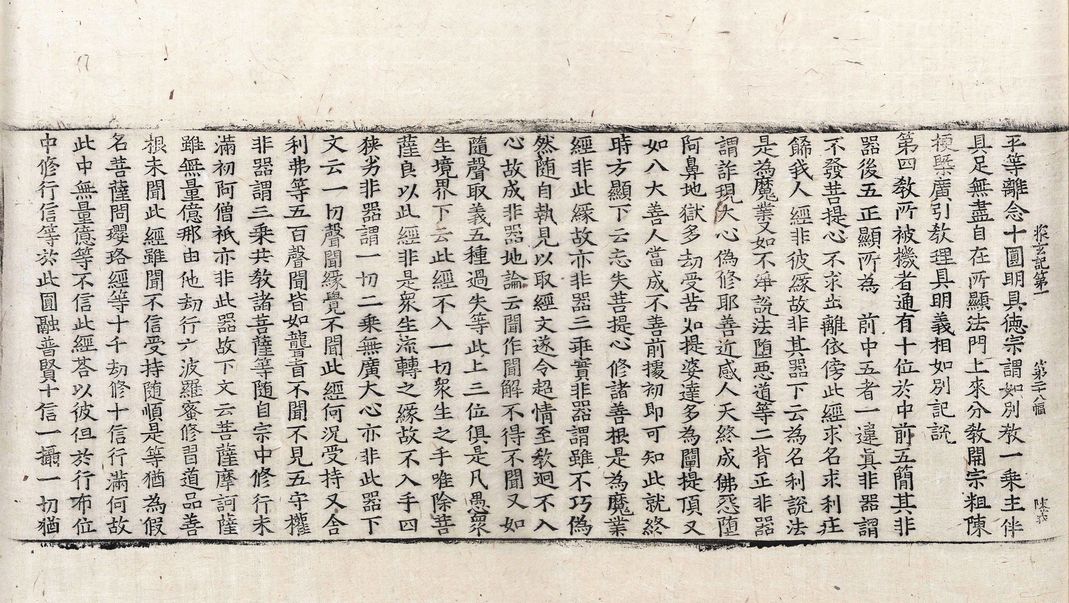 探玄記第一 第二十八幅
平等離念十圓明具徳宗謂如別教一乗主伴
具足無盡自在所顯法門上來分教開宗粗陳
梗槩廣引教理具明義相如別記說
第四教所被機者通有十位於中前五簡其非
器後五正顯所為 前中五者一違眞非器謂
不發菩提心不求出離依傍此經求名求利莊
餙我人經非彼緣故非其器下云為名利說法
是為魔業又如不淨說法堕惡道等二背正非器
謂詐現大心偽修耶善近感人天終成佛惡堕
阿鼻地獄多劫受苦如提婆達多為闡提頂又
如八大善人當成不善前攘初即可知此就終
時方顯下云忘失菩提心修諸善根是為魔業
經非此緣故亦非器三乖實非器謂雖不巧偽
然随自執見以取經文遂令超情至教迴不入
心故成非器地論云聞作聞解不得不聞又如
隨聲取義五種過失等此上三位俱是凡愚衆
生境界下云此經不入一切衆生之手唯除菩
薩良以此經非是衆生流轉之緣故不入手四
狹劣非器謂一切二乗無廣大心亦非此器下
文云一切聲聞緣覺不聞此經何況受持又舍
利弗等五百聲聞皆如聾盲不聞不見五守權
非器謂三乗共教諸菩薩等隨自宗中修行未
滿初阿僧祇亦非此器故下文云菩薩摩訶薩
雖無量億那由他劫行六波羅蜜修習道品善
根未聞此經雖聞不信受持隨順是等猶為假
名菩薩問瓔珞經等十千劫修十信行滿何故
此中無量億等不信此經荅以彼但於行布位
中修行信等於此圓融普賢十信一攝一切猶